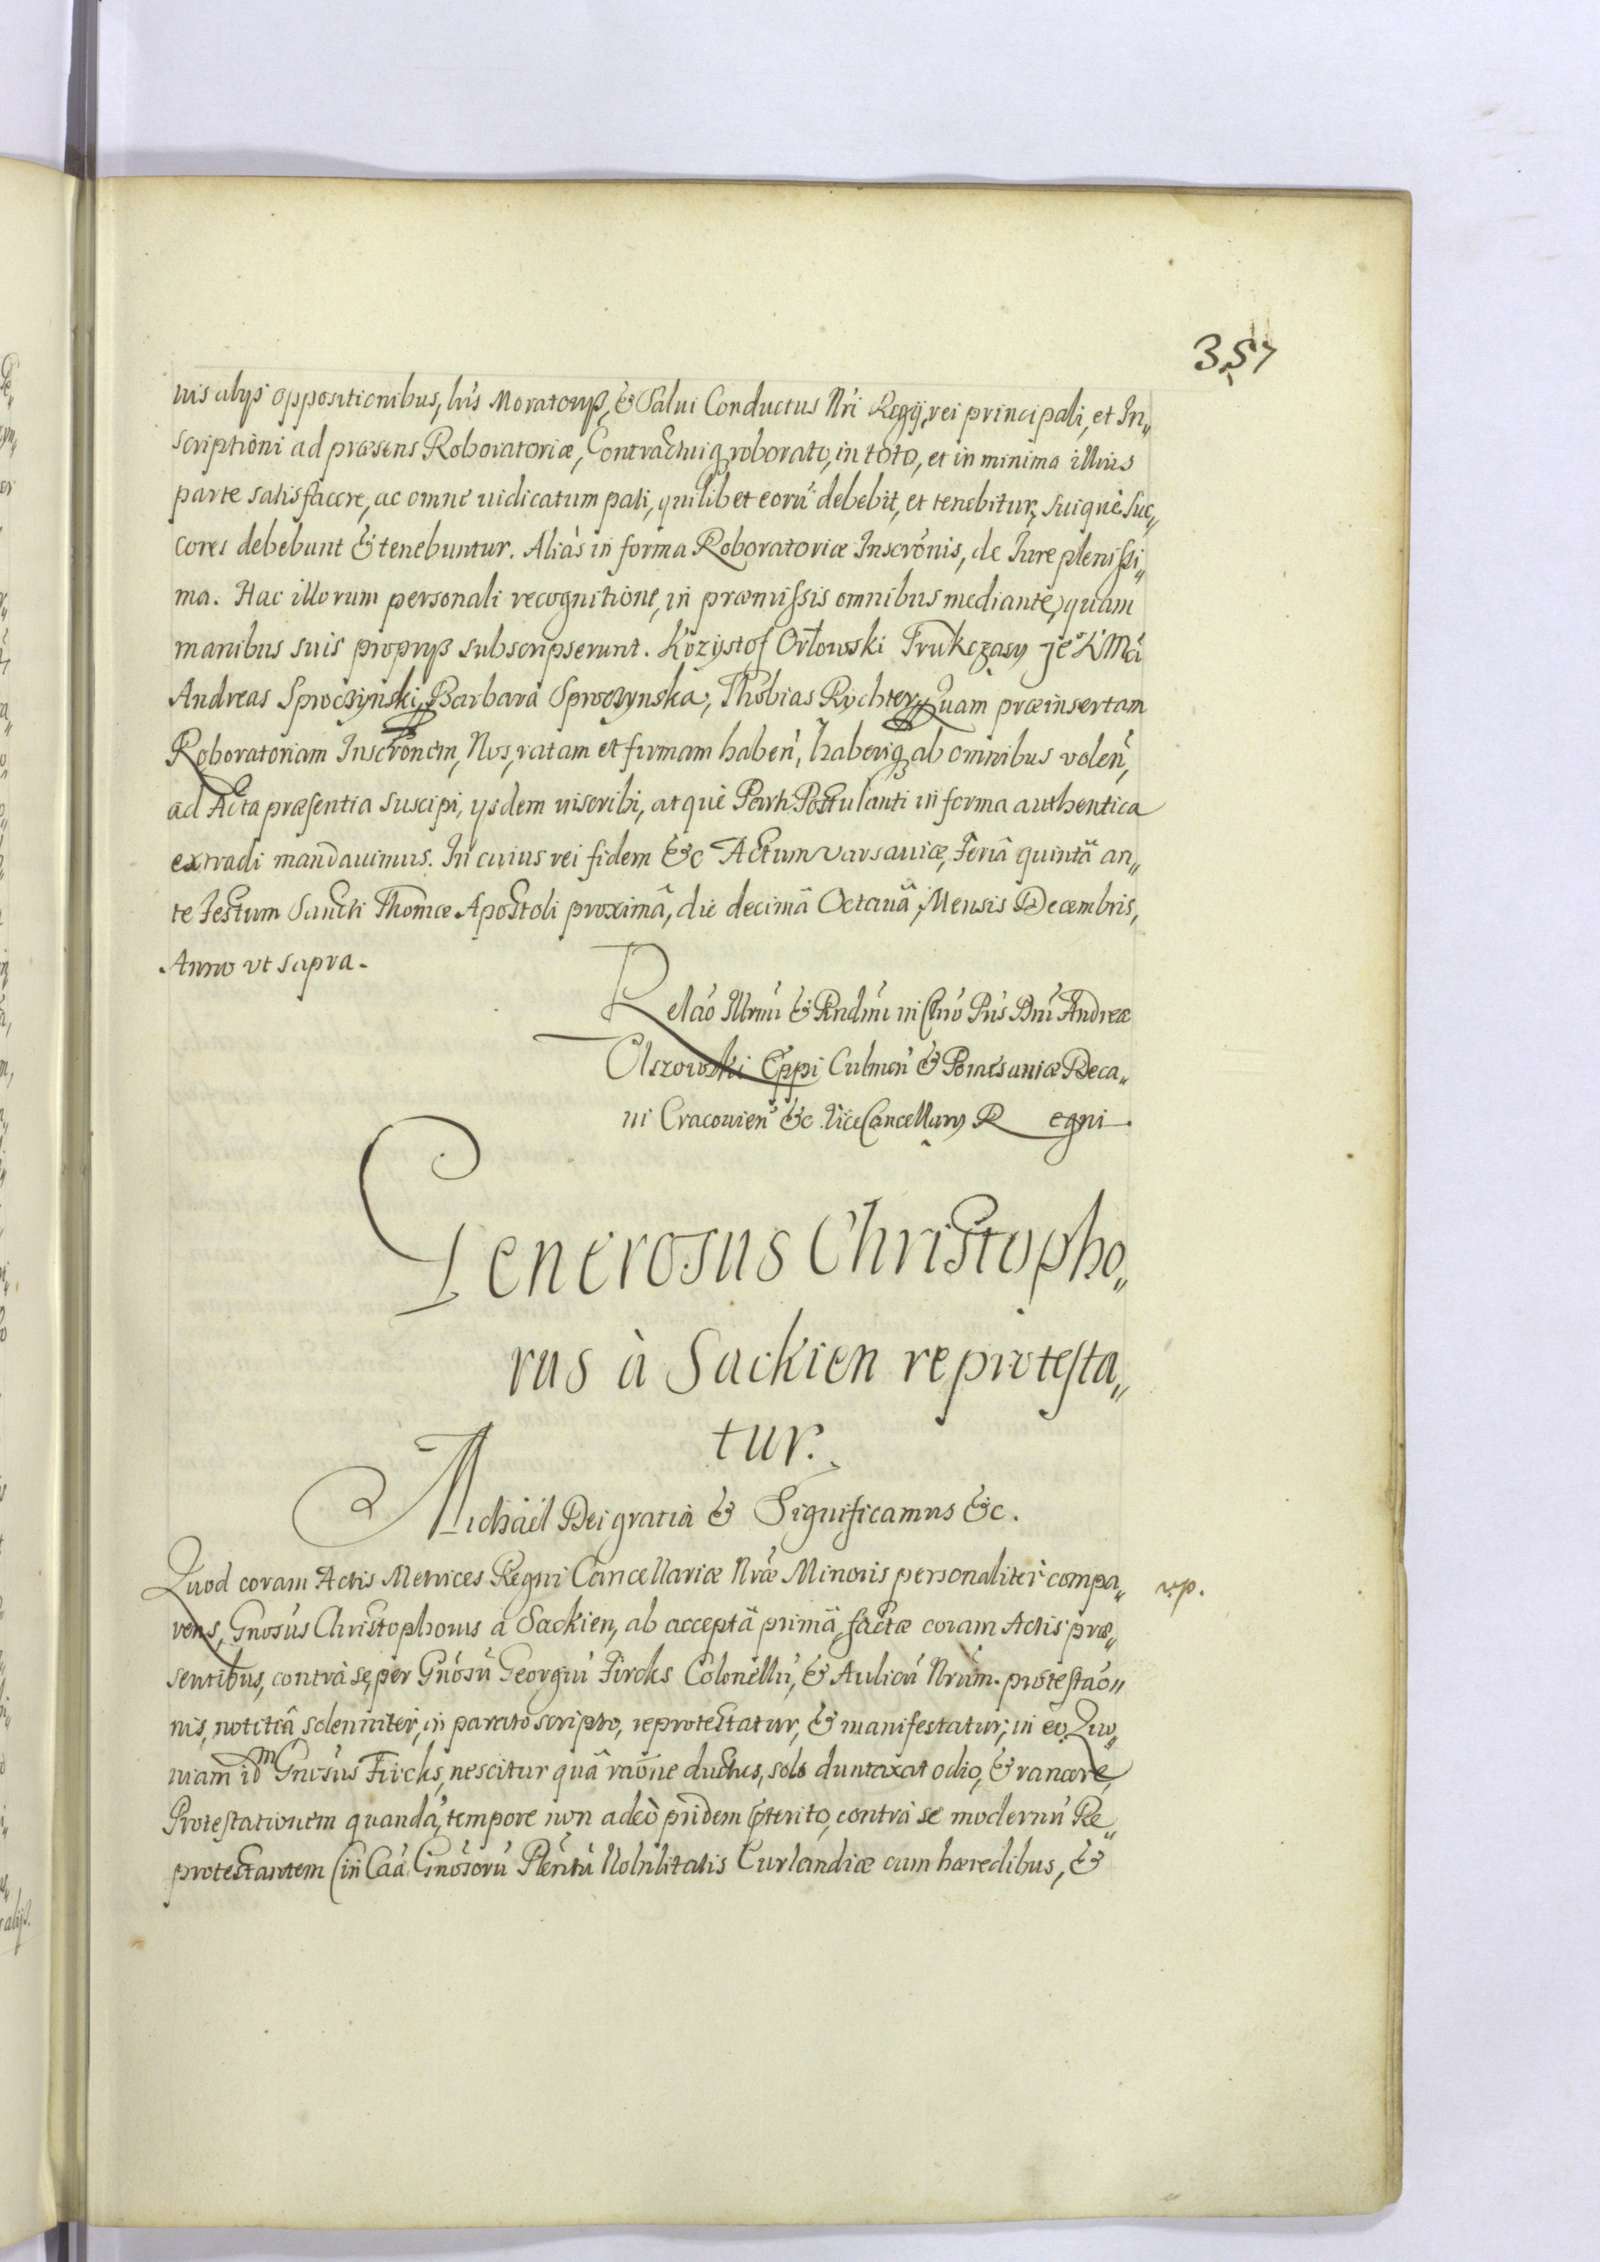 357
uis alijs oppositionibus, lris Moratorijs, & Salui Conductus Nri Regij, rei principali, et In„
scriptioni ad præsens Roboratoriæ, Contractuiq3 roborato, in toto, et in minima illius
parte satisfacere, ac omne uidicatum pati, quilibet eorũ debebit, et tenebitur, suiquè suc„
cores debebunt & tenebuntur. Aliàs in forma Roboratoriæ Inscrõnis, de Iure plenissi„
ma. Hac illorum personali recognitione, in præmissis omnibus mediante, quam
manibus suis proprijs subscripserunt. Krzysztof Orłowski Trukczasy Je° K Mci
Andreas Sproczynski, Barbara Sproczynska, Thobias Rychter, Quam præinsertam
Roboratoriam Inscrõnem, Nos, ratam et firmam haben̄, haberiq3 ab omnibus volen̄,
ad Acta præsentia suscipi, ijsdem inscribi, atquè Parti Postulanti in forma authentica
extradi mandauimus. In cuius rei fidem &c Actum Varsauiæ, Feriâ quintâ an„
te Festum Sancti Thomæ Apostoli proximâ, die decimâ Octauâ, Mensis Decembris,
Anno vt supra.
Relão Illrmi & Rndmi in Chrõ Pris Dni Andreæ
Olszowski Eppi Culmen̄ & Pomesaniæ Deca„
ni Cracouien̄ &c. ViceCancellarij Regni.
Generosus Christopho„
rus à Sackien reprotesta„
tur.
Michaël Dei gratia & Significamus &c.
Quod coram Actis Metrices Regni Cancellariæ Nræ Minoris personaliter compa„
rp.
rens, Gnosus Christophorus a Sackien, ab acceptâ primâ, factæ coram Actis præ„
sentibus, contrà se, per Gnosũ Georgiũ Fircks Colonellũ, & Aulicũ Nrum. protestaõ„
nis, notitiâ, solenniter, in parato scripto, reprotestatur, & manifestatur, in eo, Quo„
niam idm Gnosus Fircks, nescitur quâ raõne ductus, solo duntaxat odio, & rancore,
Protestationem quandã, tempore non adeò pridem pterito, contrà se modernũ Re„
protestantem (in Cãa Gnosorũ Plentũ Nobilitatis Curlandiæ cum hæredibus, &